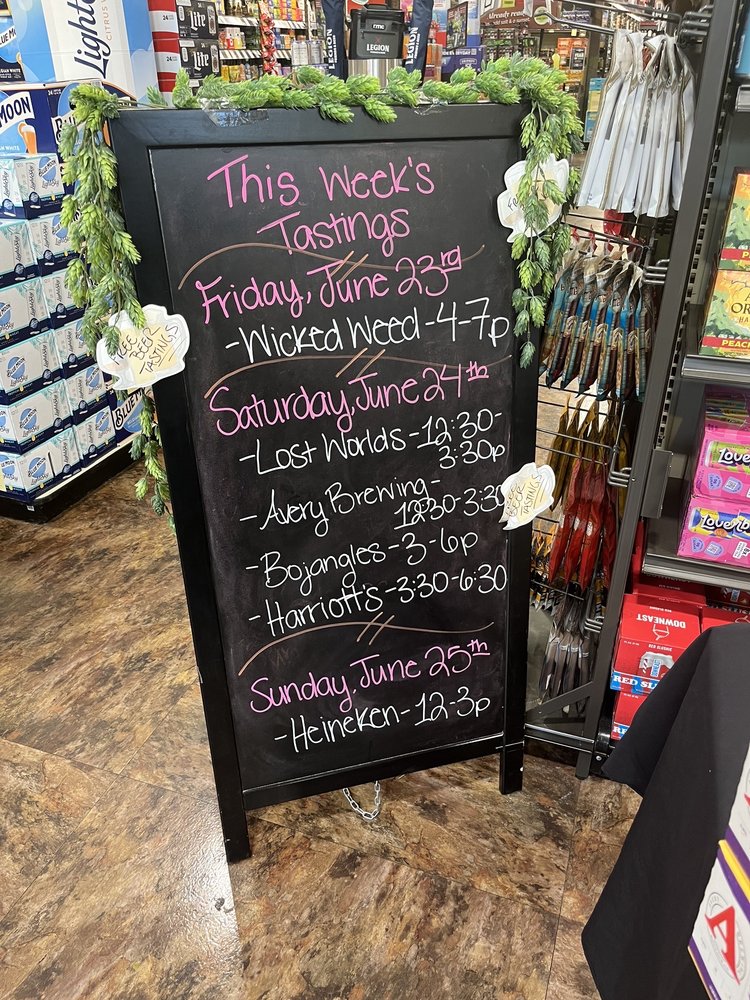 This Week's
Tastings
Friday, June 23rd
-Wicked Weed-4-7p
Saturday, June 24th
-Lost Worlds-12:30-
3:30p
-Avery Brewing-
12:30-3:30
-Bojangles-3-6p
-Harriott's-3:30-6:30
Sunday, June 25th
-Heineken-12-3p
FREE
BEER
TASTINGS
FREE
BEER
TASTINGS
Light
CITRUS
Lite
LEGION
LEGION
LEGION
MOON
BLUE MOON
PEACH
DOWNEAST
RED SL
A